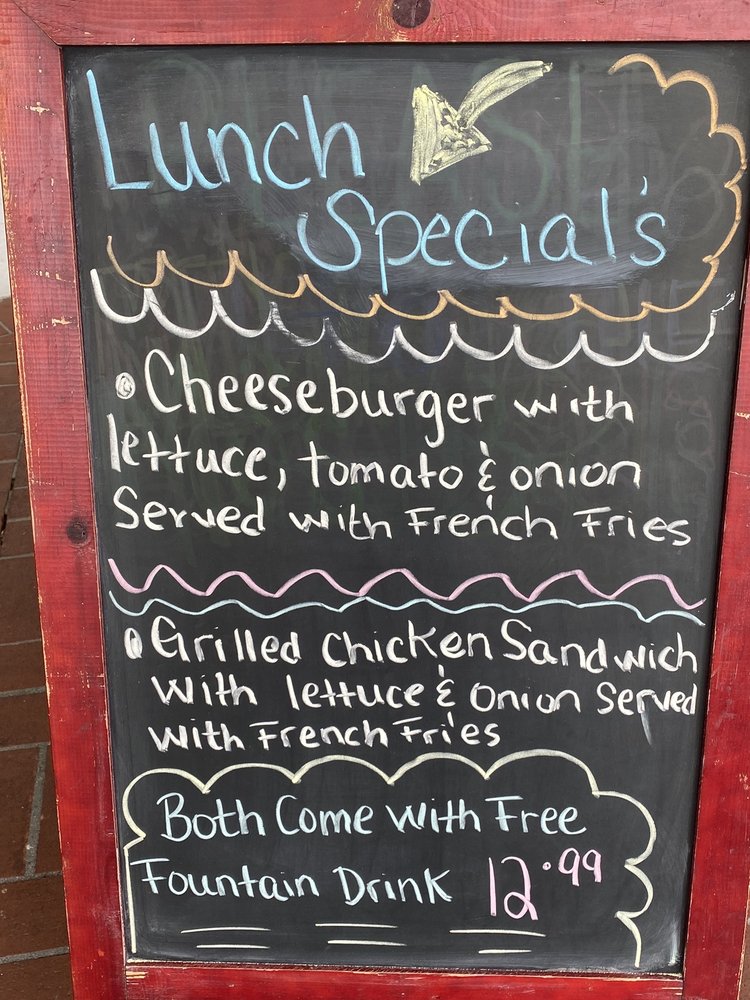 Lunch
Special's
Cheeseburger with
lettuce, tomato & onion
Served with French Fries
Grilled Chicken Sandwich
with lettuce & onion Served
with French Fries
Both Come With Free
Fountain Drink 12.99